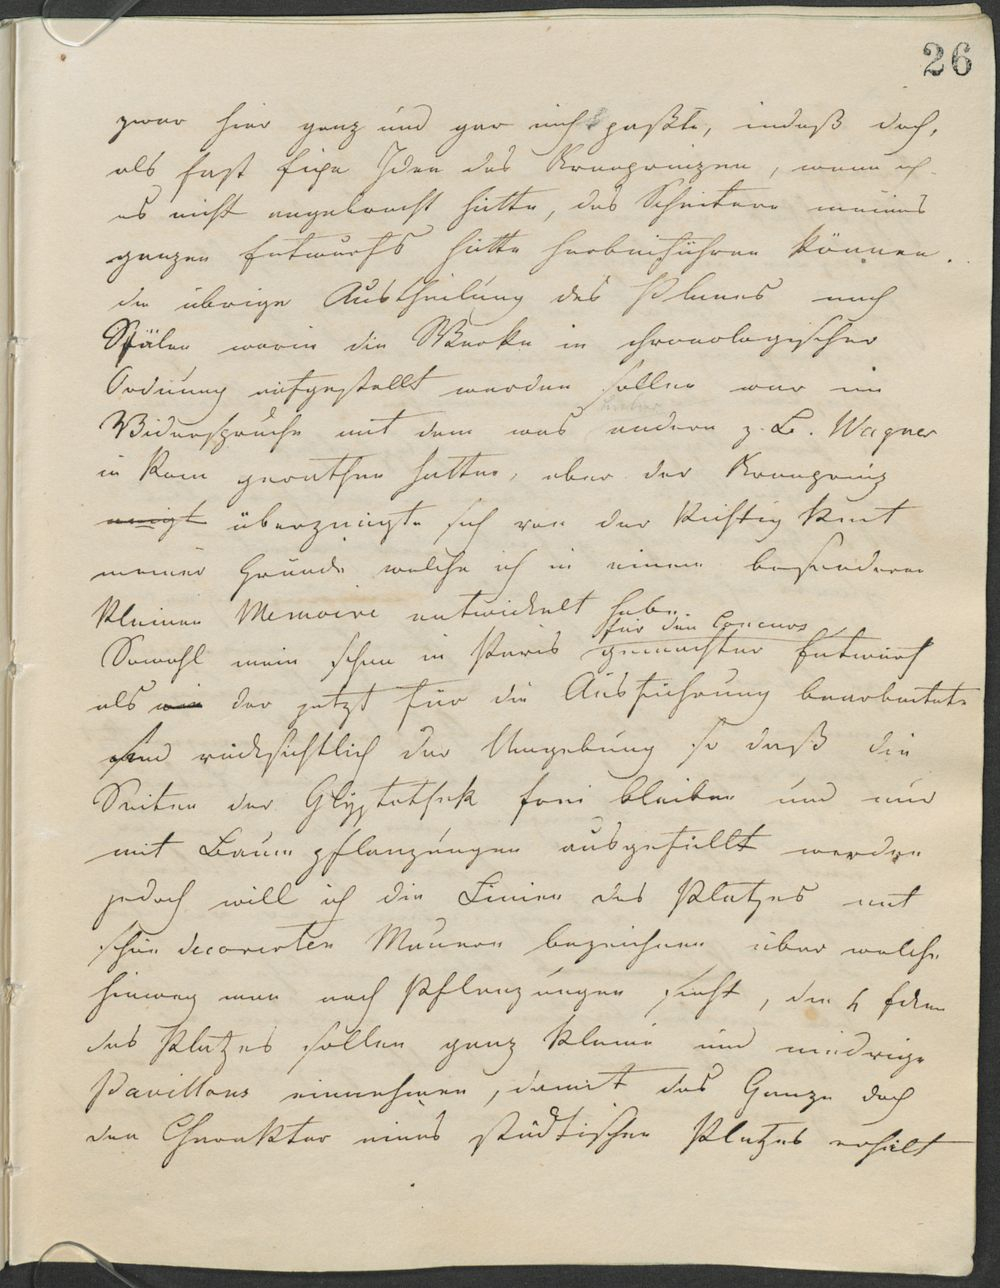 26
zwar hier ganz und gar nicht paßte, indeß doch,
als fast fixe Idee des Kronprinzen, wenn ich
es nicht angebracht hätte, das Scheitern meines
ganzen Entwurfs hätte herbeiführen können.
die übrige Austheilung des Planes nach
Säälen worin die Werke in chronologischer
Ordnung aufgestellt werden sollen war im
Widerspruche mit dem was andere z. B. Wagner
in Rom gerathen hatten, aber der Kronprinz
überzeugte sich von der Richtigkeit
meiner Gründe welche ich in einem besonderen
kleinen Memoire entwickelt habe.
für den Concurs
Sowohl mein schon in Paris gemachter Entwurf
als der jetzt für die Ausführung bearbeitete
sind rücksichtlich der Umgebung so daß die
Seiten der Glyptothek frei bleiben und nur
mit Baumpflanzungen ausgefüllt werden
jedoch will ich die Linien des Platzes mit
schön decorirten Mauern bezeichnen über welche
hinweg man nach Pflanzungen sieht, die 4 Ecken
des Platzes sollen ganz kleine und niedrige
Pavillons einnehmen, damit das Ganze doch
den Charakter eines städtischen Platzes erhält